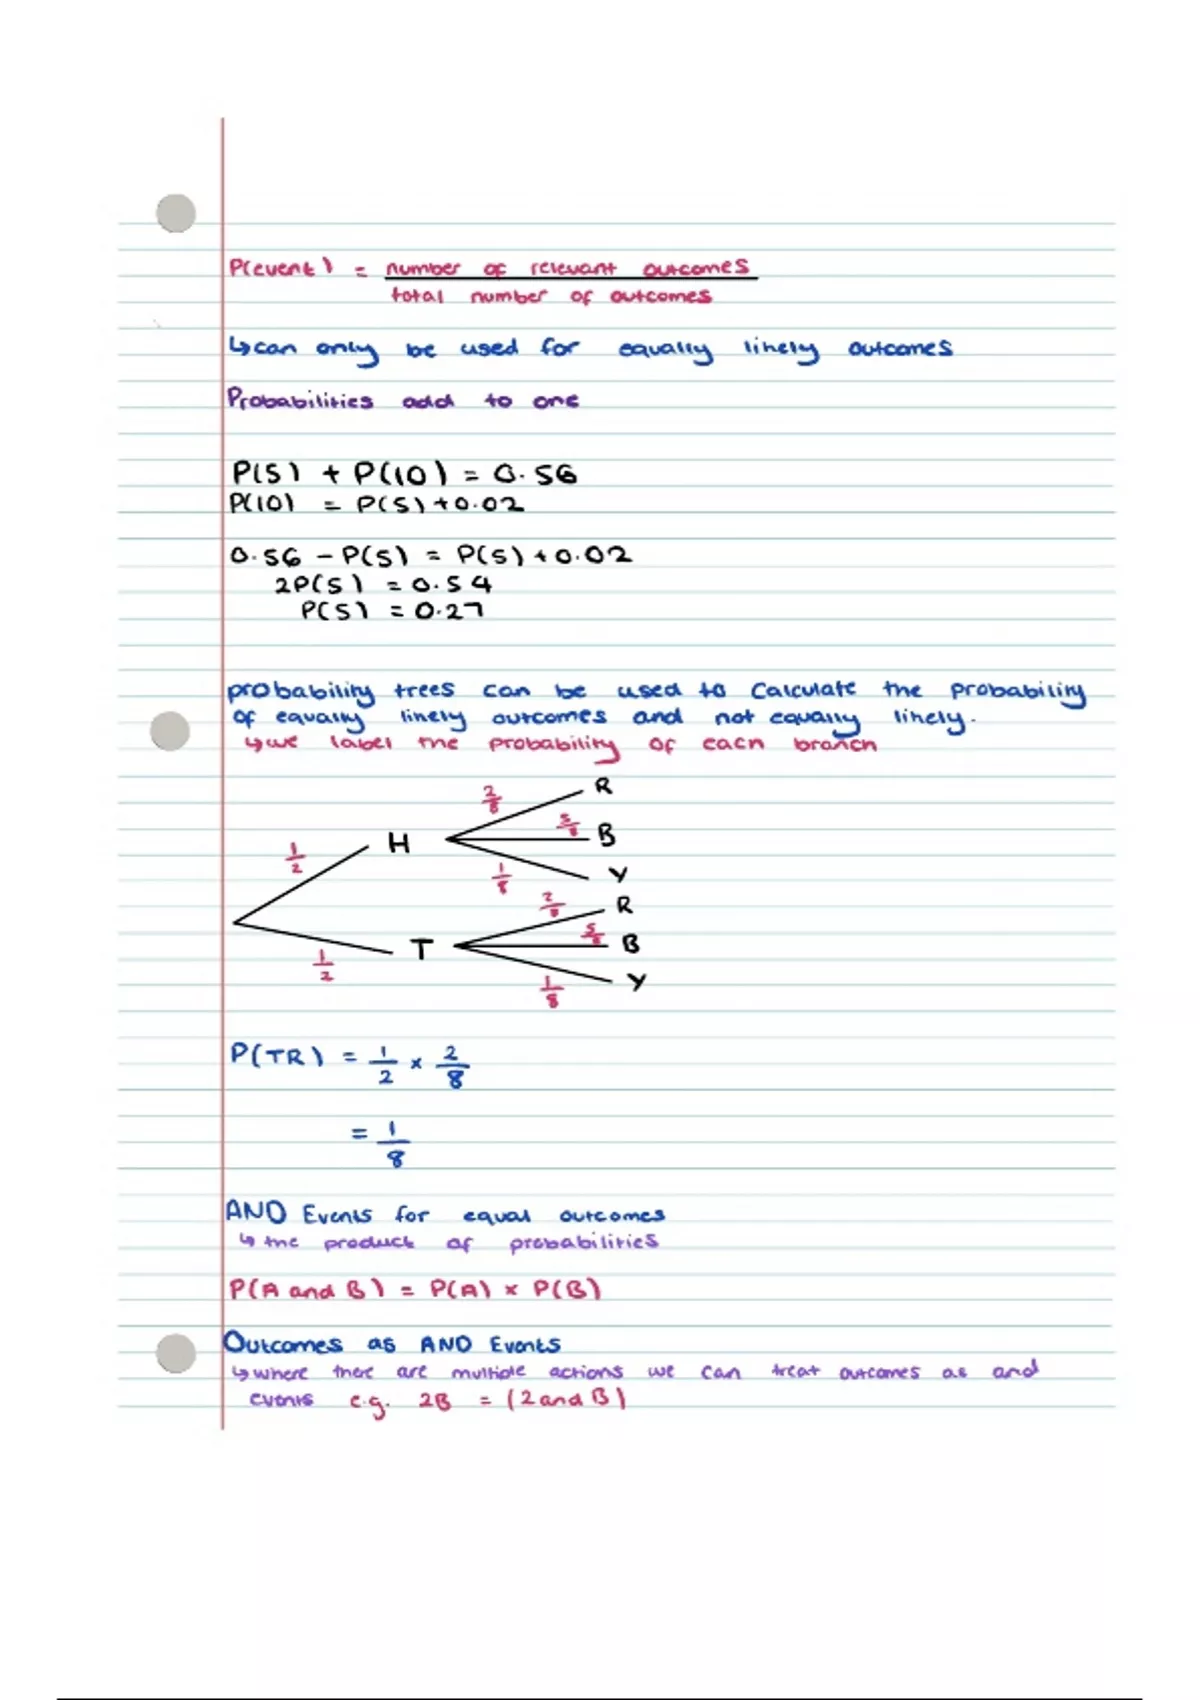 P(event) = number of relevant outcomes
total number of outcomes
↳ can only be used for equally likely outcomes
Probabilities add to one
P(5) + P(10) = 0.56
P(10) = P(5) + 0.02
0.56 - P(5) = P(5) + 0.02
2P(5) = 0.54
P(5) = 0.27
probability trees can be used to calculate the probability
of equally likely outcomes and not equally likely.
↳ we label the probability of each branch
2/8 R
5/8 B
1/2 H
1/8 Y
2/8 R
5/8 B
1/2 T
1/8 Y
P(TR) = 1/2 × 2/8
= 1/8
AND Events for equal outcomes
↳ the product of probabilities
P(A and B) = P(A) × P(B)
Outcomes as AND Events
↳ where there are multiple actions we can treat outcomes as and
events e.g. 2B = (2 and B)